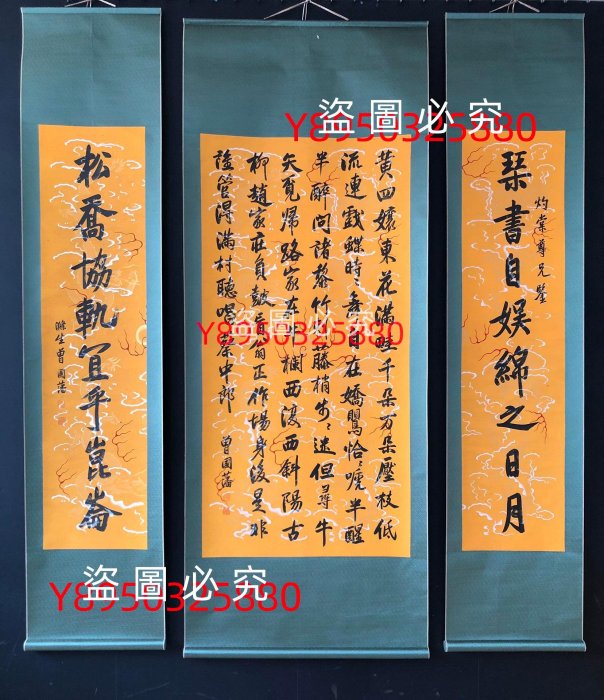 琴書自娛綿之日月
灼棠尊兄鑒
黃四孃東花滿畦千朵萬朵壓枝低
流連戲蝶時〻舞自在嬌鶯恰〻啼半醒
半醉問諸黎竹刺藤梢步〻迷但尋牛
矢覓歸路家在牛欄西復西斜陽古
柳趙家莊負鼓盲翁正作場身後是非
誰管得滿村聽唱蔡中郎
曾國藩
松喬協軌宜乎崑崙
滌生曾國藩
盜圖必究
Y8950325880
盜圖必究
Y8950325880
盜圖必究
Y8950325880